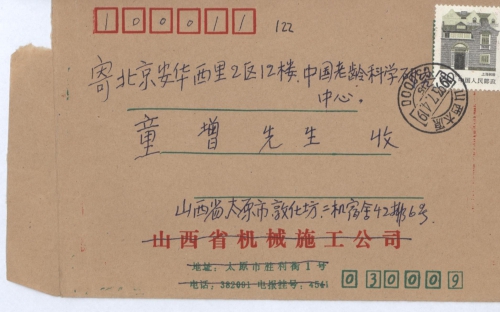 100011 122
寄北京安华西里2区12楼,中国老龄科学研
中心。
童增先生 收
山西省太原市敦化坊二机宿舍42排6号
山西省机械施工公司
地址：太原市胜利街1号
电话：382091 电报挂号：4541
030009
中国人民邮政
山西太原